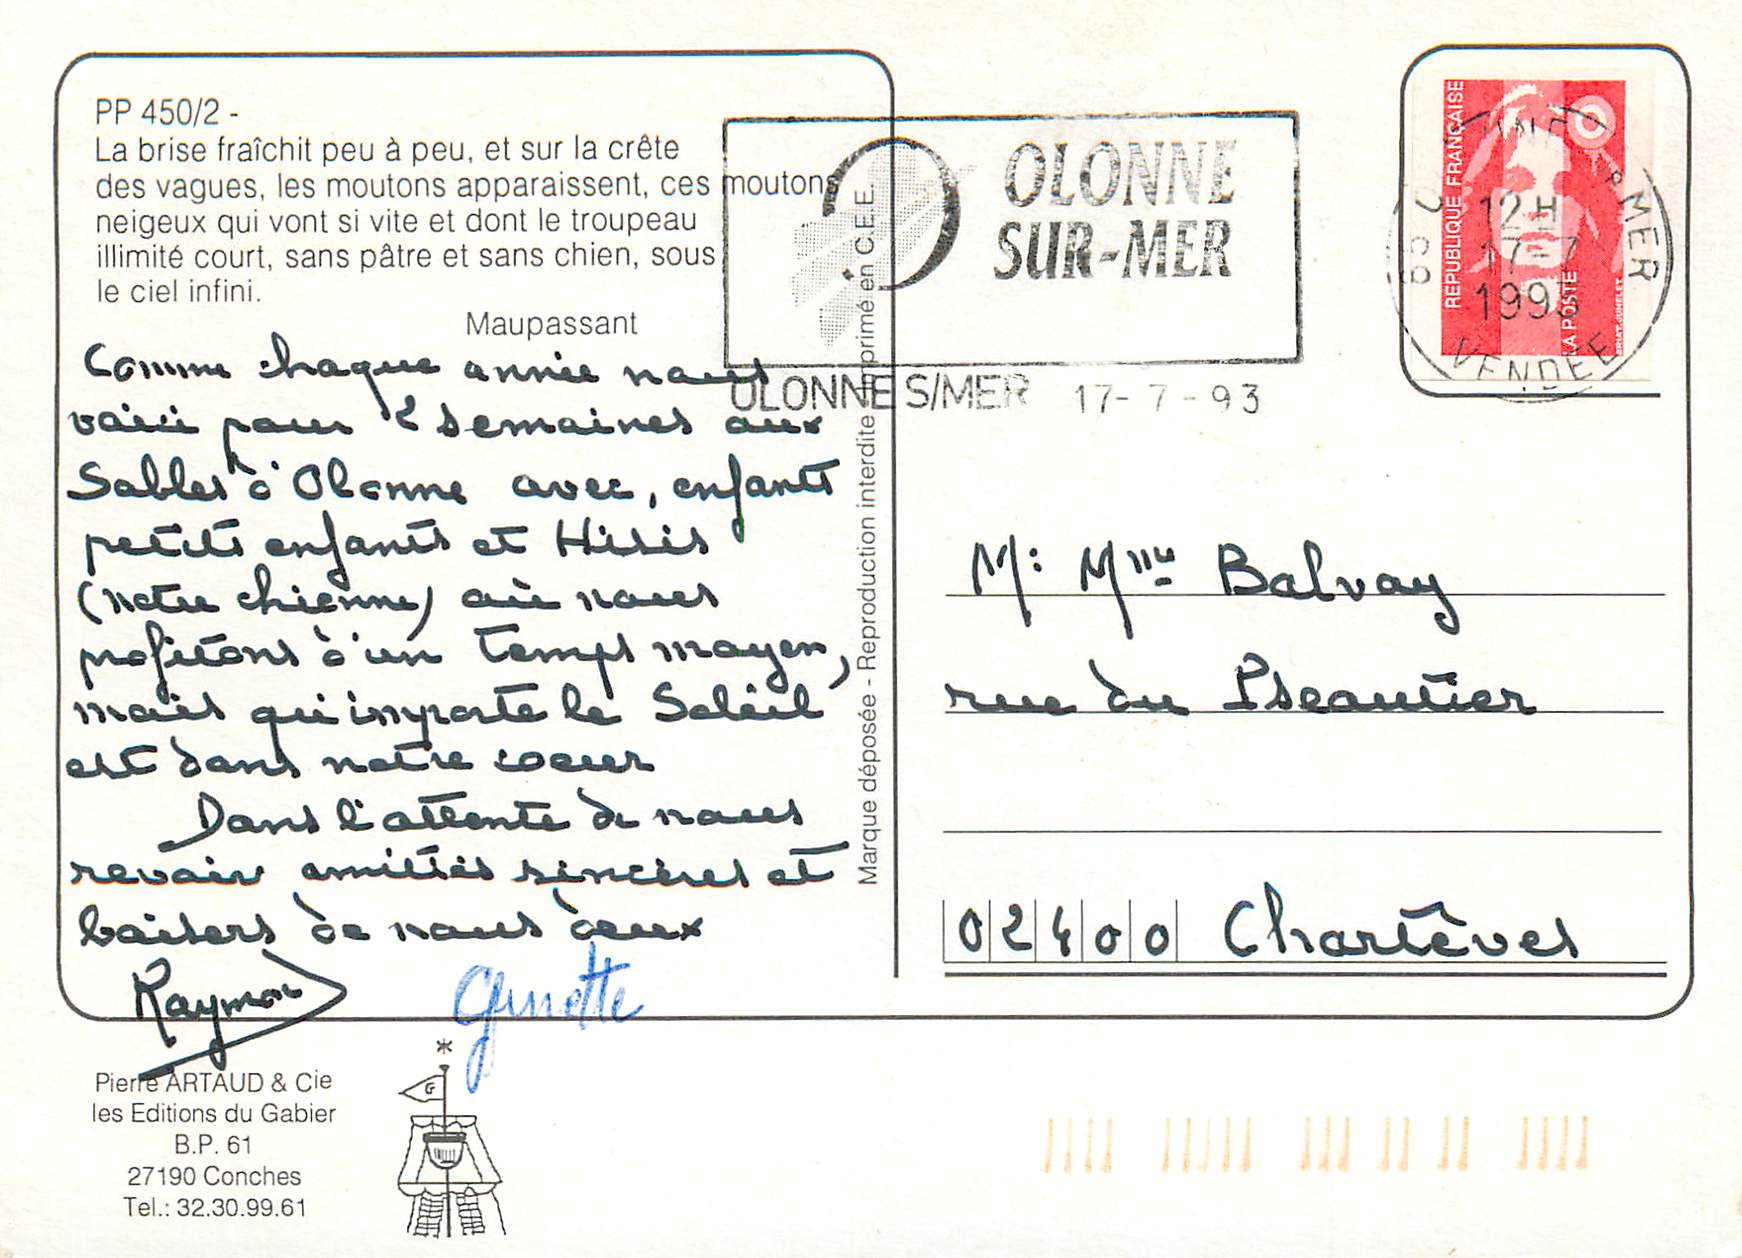 PP 450/2 -
La brise fraîchit peu à peu, et sur la crête
des vagues, les moutons apparaissent, ces moutons
neigeux qui vont si vite et dont le troupeau
illimité court, sans pâtre et sans chien, sous
le ciel infini.
Maupassant
Comme chaque année nous
voici pour 2 semaines aux
Sables d'Olonne avec, enfants
petits enfants et Hisis
(notre chienne) où nous
profitons d'un temps moyen,
mais qu'importe le Soleil
est dans notre coeur
Dans l'attente de nous
revoir amitiés sincères et
baisers de nous deux
Raymon
Ginette
Pierre ARTAUD & Cie
les Editions du Gabier
B.P. 61
27190 Conches
Tel.: 32.30.99.61
Marque déposée - Reproduction interdite Imprimé en C.E.E.
OLONNE
SUR-MER
OLONNE S/MER 17-7-93
REPUBLIQUE FRANÇAISE
LA POSTE
BRIAT-JUMELET
MER
12H
17-7
1993
VENDÉE
M. Mme Balvay
rue du
02400 Chartèves